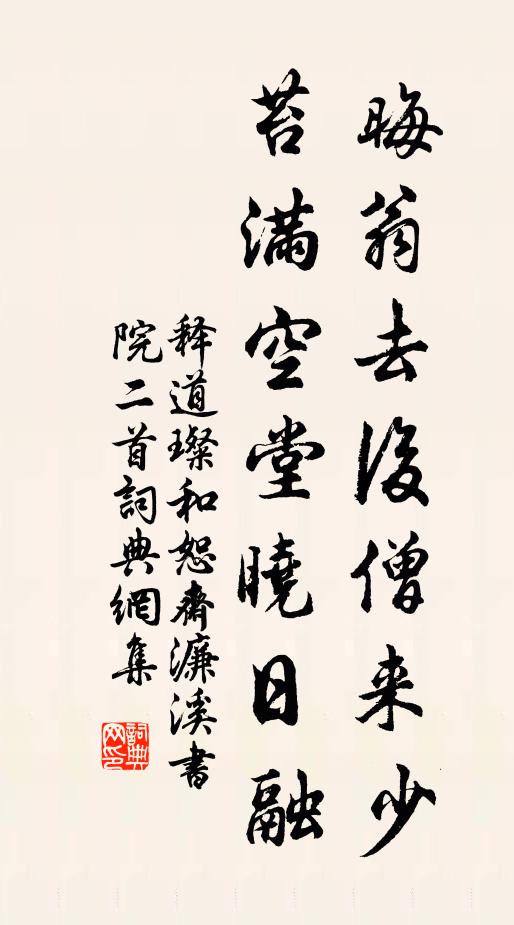 晦翁去後僧来少
苔滿空堂曉日融
释道璨和恕齋濂溪書
院二首詞典網集
詞典
网印